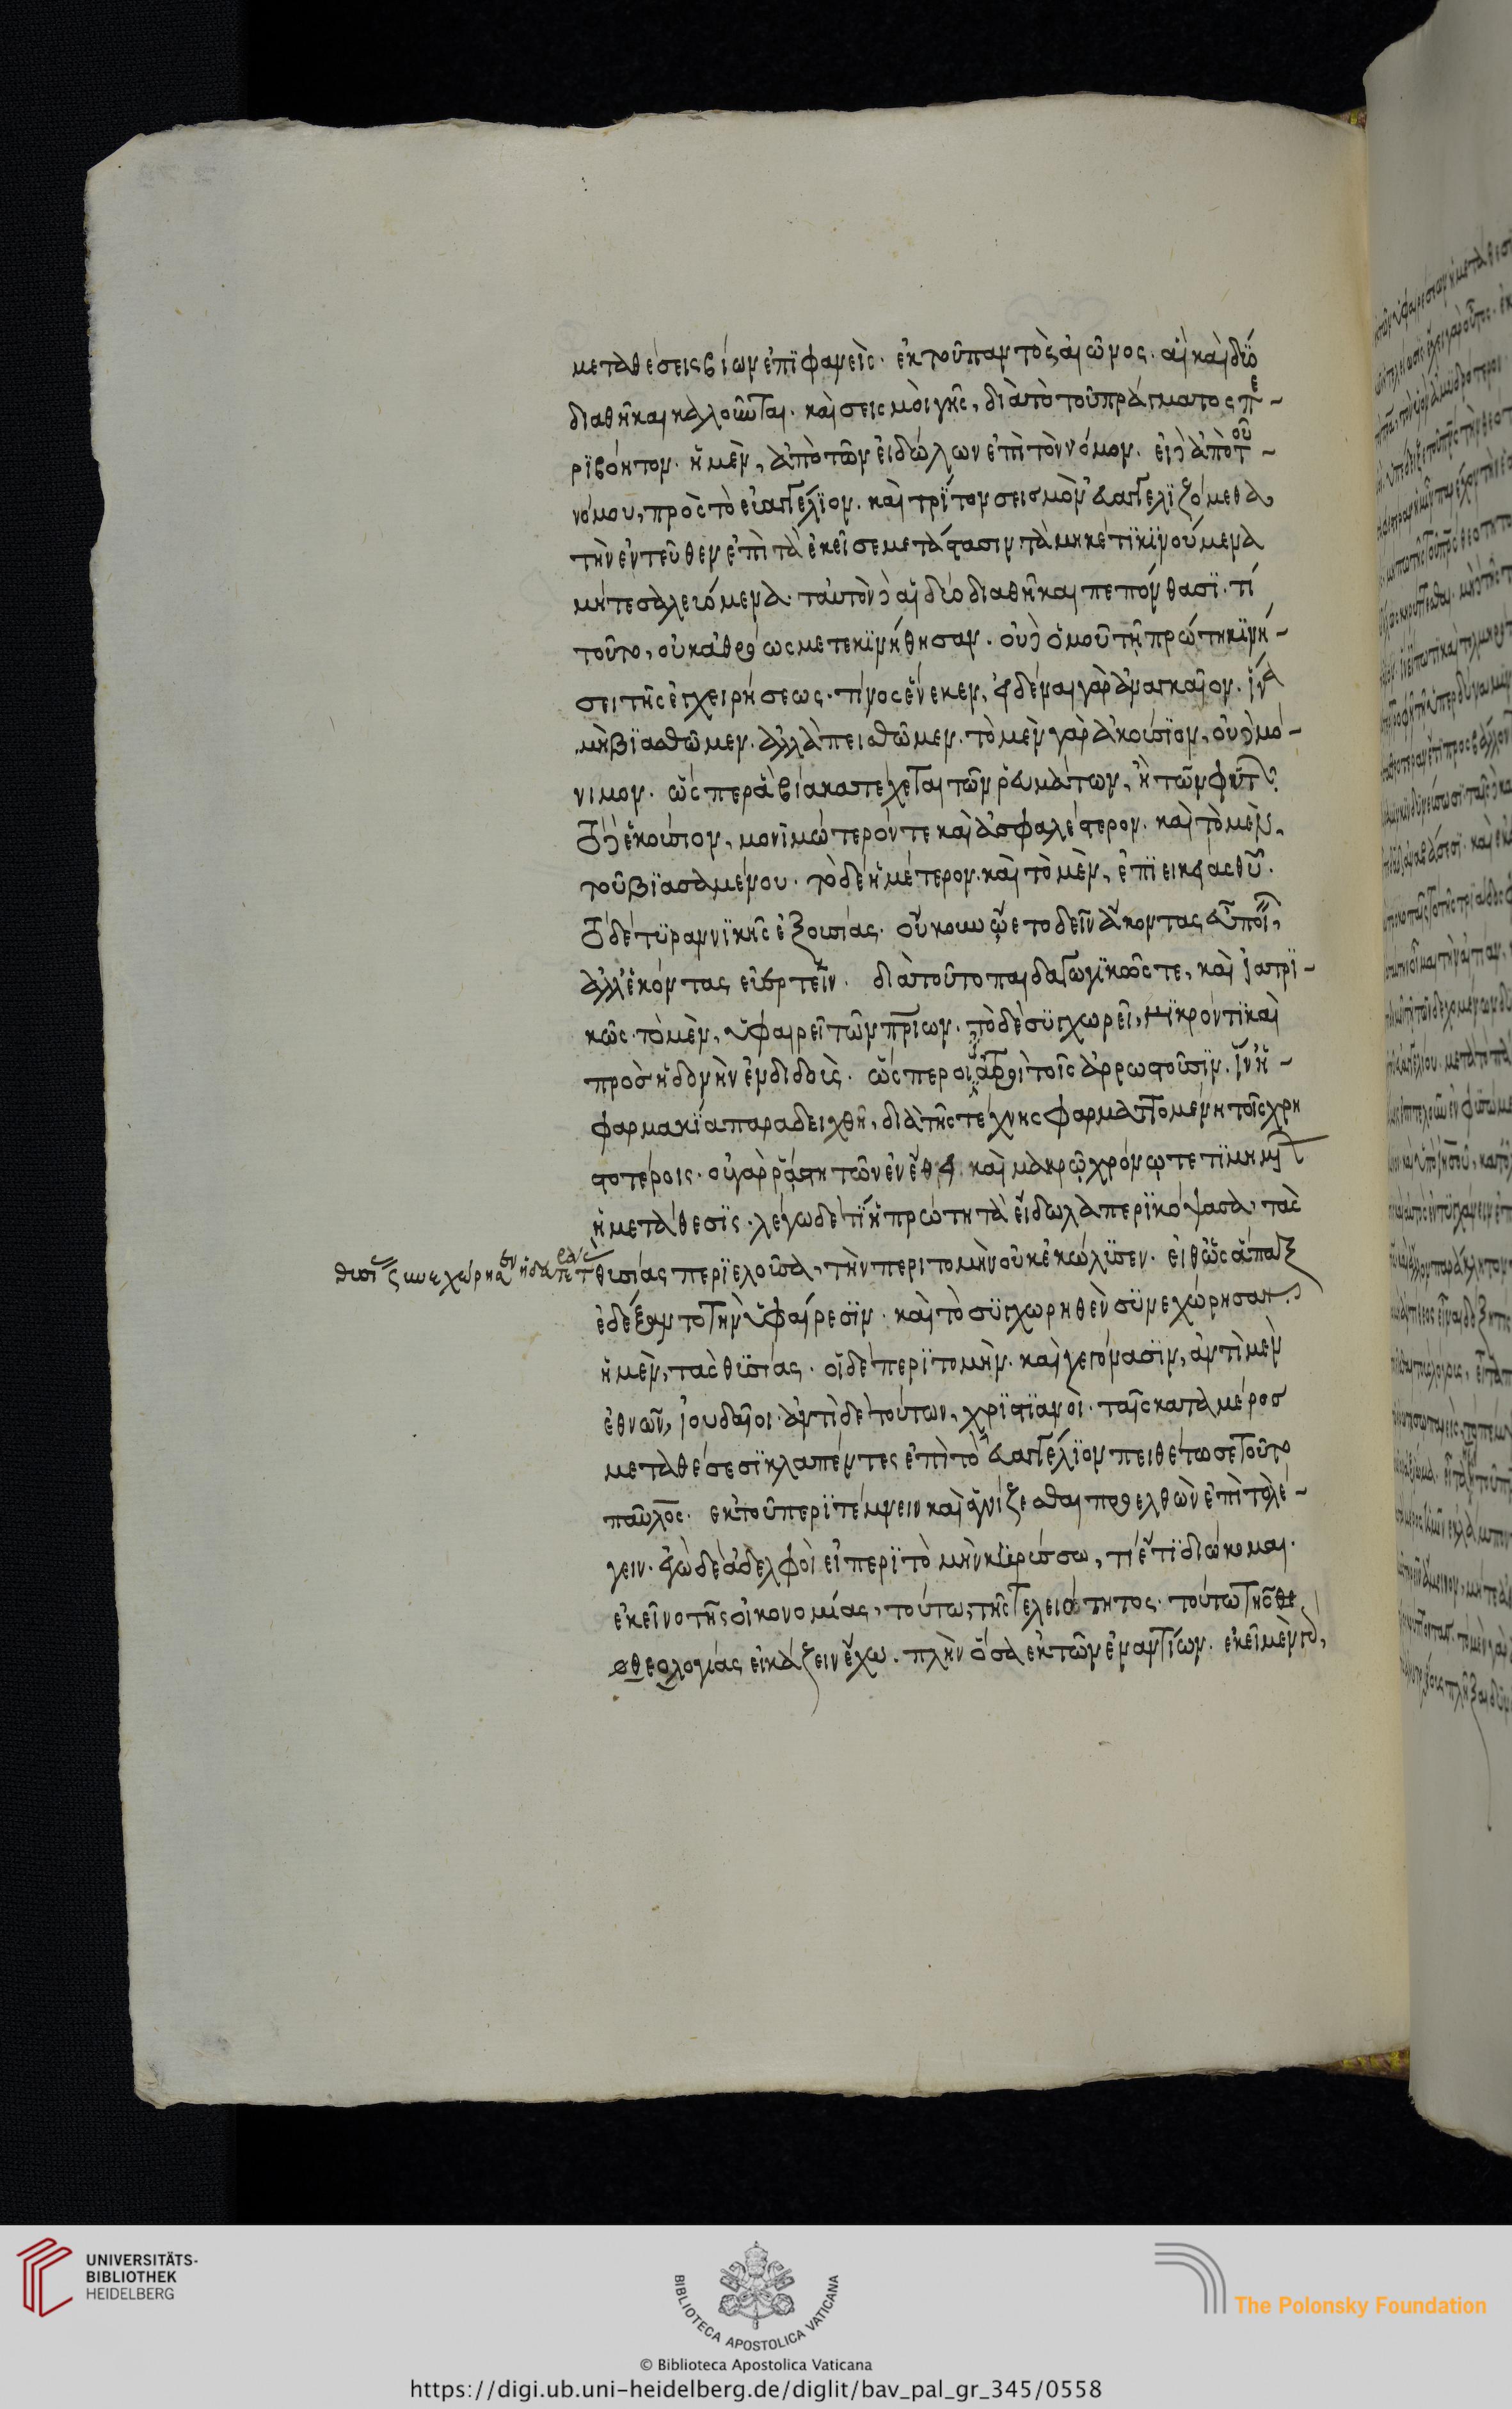 μεταθέσεις βίων ἐπϊφανεῖς· ἐκ τοῦ παντὸς αἰῶνος· αἳ καὶ δύο
διαθῆκαι καλοῦνται· καὶ σεισμοὶ γῆς, διὰ τὸ τοῦ πράγματος πε-
ρϊβόητον· ἡ μὲν, ἀπὸ τῶν εἰδώλων ἐπὶ τὸν νόμον. εἱ δ ἀπὸ τοῦ-
νόμου, πρὸς τὸ εὐαγγέλϊον. καὶ τρΐτον σεισμὸν εὐαγγελϊζόμεθα,
τὴν ἐντεῦθεν ἐπὶ τὰ ἐκεῖσε μετάστασιν, τὰ μηκέτϊ κϊνούμενα
μήτε σαλευόμενα. ταυτὸν δ αἱ δύο διαθῆκαι πεπόνθασϊ. τί
τοῦτο, οὐκ ἀθρόως μετεκϊνήθησαν. οὐδ ὁμοῦ τῇ πρώτῃ κϊνή-
σει τῆς ἐγχειρήσεως. τίνος ἕνεκεν, εἰδέναι γὰρ ἀναγκαῖον. ἵνα
μὴ βϊασθῶμεν. ἀλλὰ πεισθῶμεν. τὸ μὲν γὰρ ἀκούσϊον, οὐδὲ μό-
νιμον. ὥσπερ ἃ βίᾳ κατέχεται τῶν ῥευμάτων, ἢ τῶν φυτῶν.
τὸ δ ἑκούσιον, μονϊμώτερόν τε καὶ ἀσφαλέστερον. καὶ τὸ μὲν,
τοῦ βϊασαμένου. τὸ δὲ ἡμέτερον. καὶ τὸ μὲν, ἐπϊεικείας θεοῦ.
τὸ δὲ τϋραννϊκῆς ἐξουσίας. οὔκουν ᾤετο δεῖν ἄκοντας εὖ ποιεῖν,
ἀλλ' ἑκόντας εὐεργετεῖν. διὰ τοῦτο παιδαγωγϊκῶς τε, καὶ ἰατρϊ-
κῶς. τὸ μὲν, ὑφαιρεῖ τῶν πρίων. τὸ δὲ σϋγχωρεῖ, μϊκρόν τϊ καὶ
πρὸς ἡδονὴν ἐνδιδοὺς. ὥσπερ οἱ ἰατροὶ τοῖς ἀρρωστοῦσϊν. ἵν' ἡ-
φαρμακϊα παραδειχθῆ, διὰ τῆς τέχνης φαρματτομένη τοῖς χρη
στοτέροις. οὐ γὰρ ῥᾴστη τῶν ἐν ἔθει. καὶ μακρῷ χρόνῳ τετϊμημένων
ἡ μετάθεσϊς. λέγω δὲ τΐ ἡ πρώτη τὰ εἴδωλα περϊκόψασα, τὰς
θυσίας περϊελοῦσα, τὴν περιτομὴν οὐκ ἐκώλϋσεν. εἶθ' ὡς ἅπαξ
ἐδέξαντο τὴν ὑφαίρεσϊν. καὶ τὸ σϋγχωρηθὲν σϋνεχώρησαν.
ἡ μὲν, τὰς θϋσίας. οἵ δὲ περϊτομὴν. καὶ γεγόνασϊν, ἀντὶ μὲν
ἐθνῶν, ἰουδαῖοι. ἀντὶ δὲ τούτων, χρϊστϊανοὶ. ταῖς κατὰ μέροσ
μεταθέσεσϊ κλαπέντες ἐπὶ τὸ εὐαγγέλϊον πειθέτω σε τοῦτο
παῦλος. ἐκ τοῦ περϊτέμνειν καὶ ἁγνίζεσθαι προελθὼν ἐπὶ τὸ λέ-
γειν. ἐγὼ δὲ ἀδελφοὶ εἰ περϊτομὴν κϋρύσσω, τί ἔτϊ διώκομαι.
ἐκεῖνο τῆς οἰκονομίας, τοῦτο, τῆς τελειότητος. τούτω τῆς θε
θεολογίας εἰκάζειν ἔχω. πλὴν ὅσα ἐκ τῶν ἐναντίων. ἐκεῖ μὲν γὰρ,